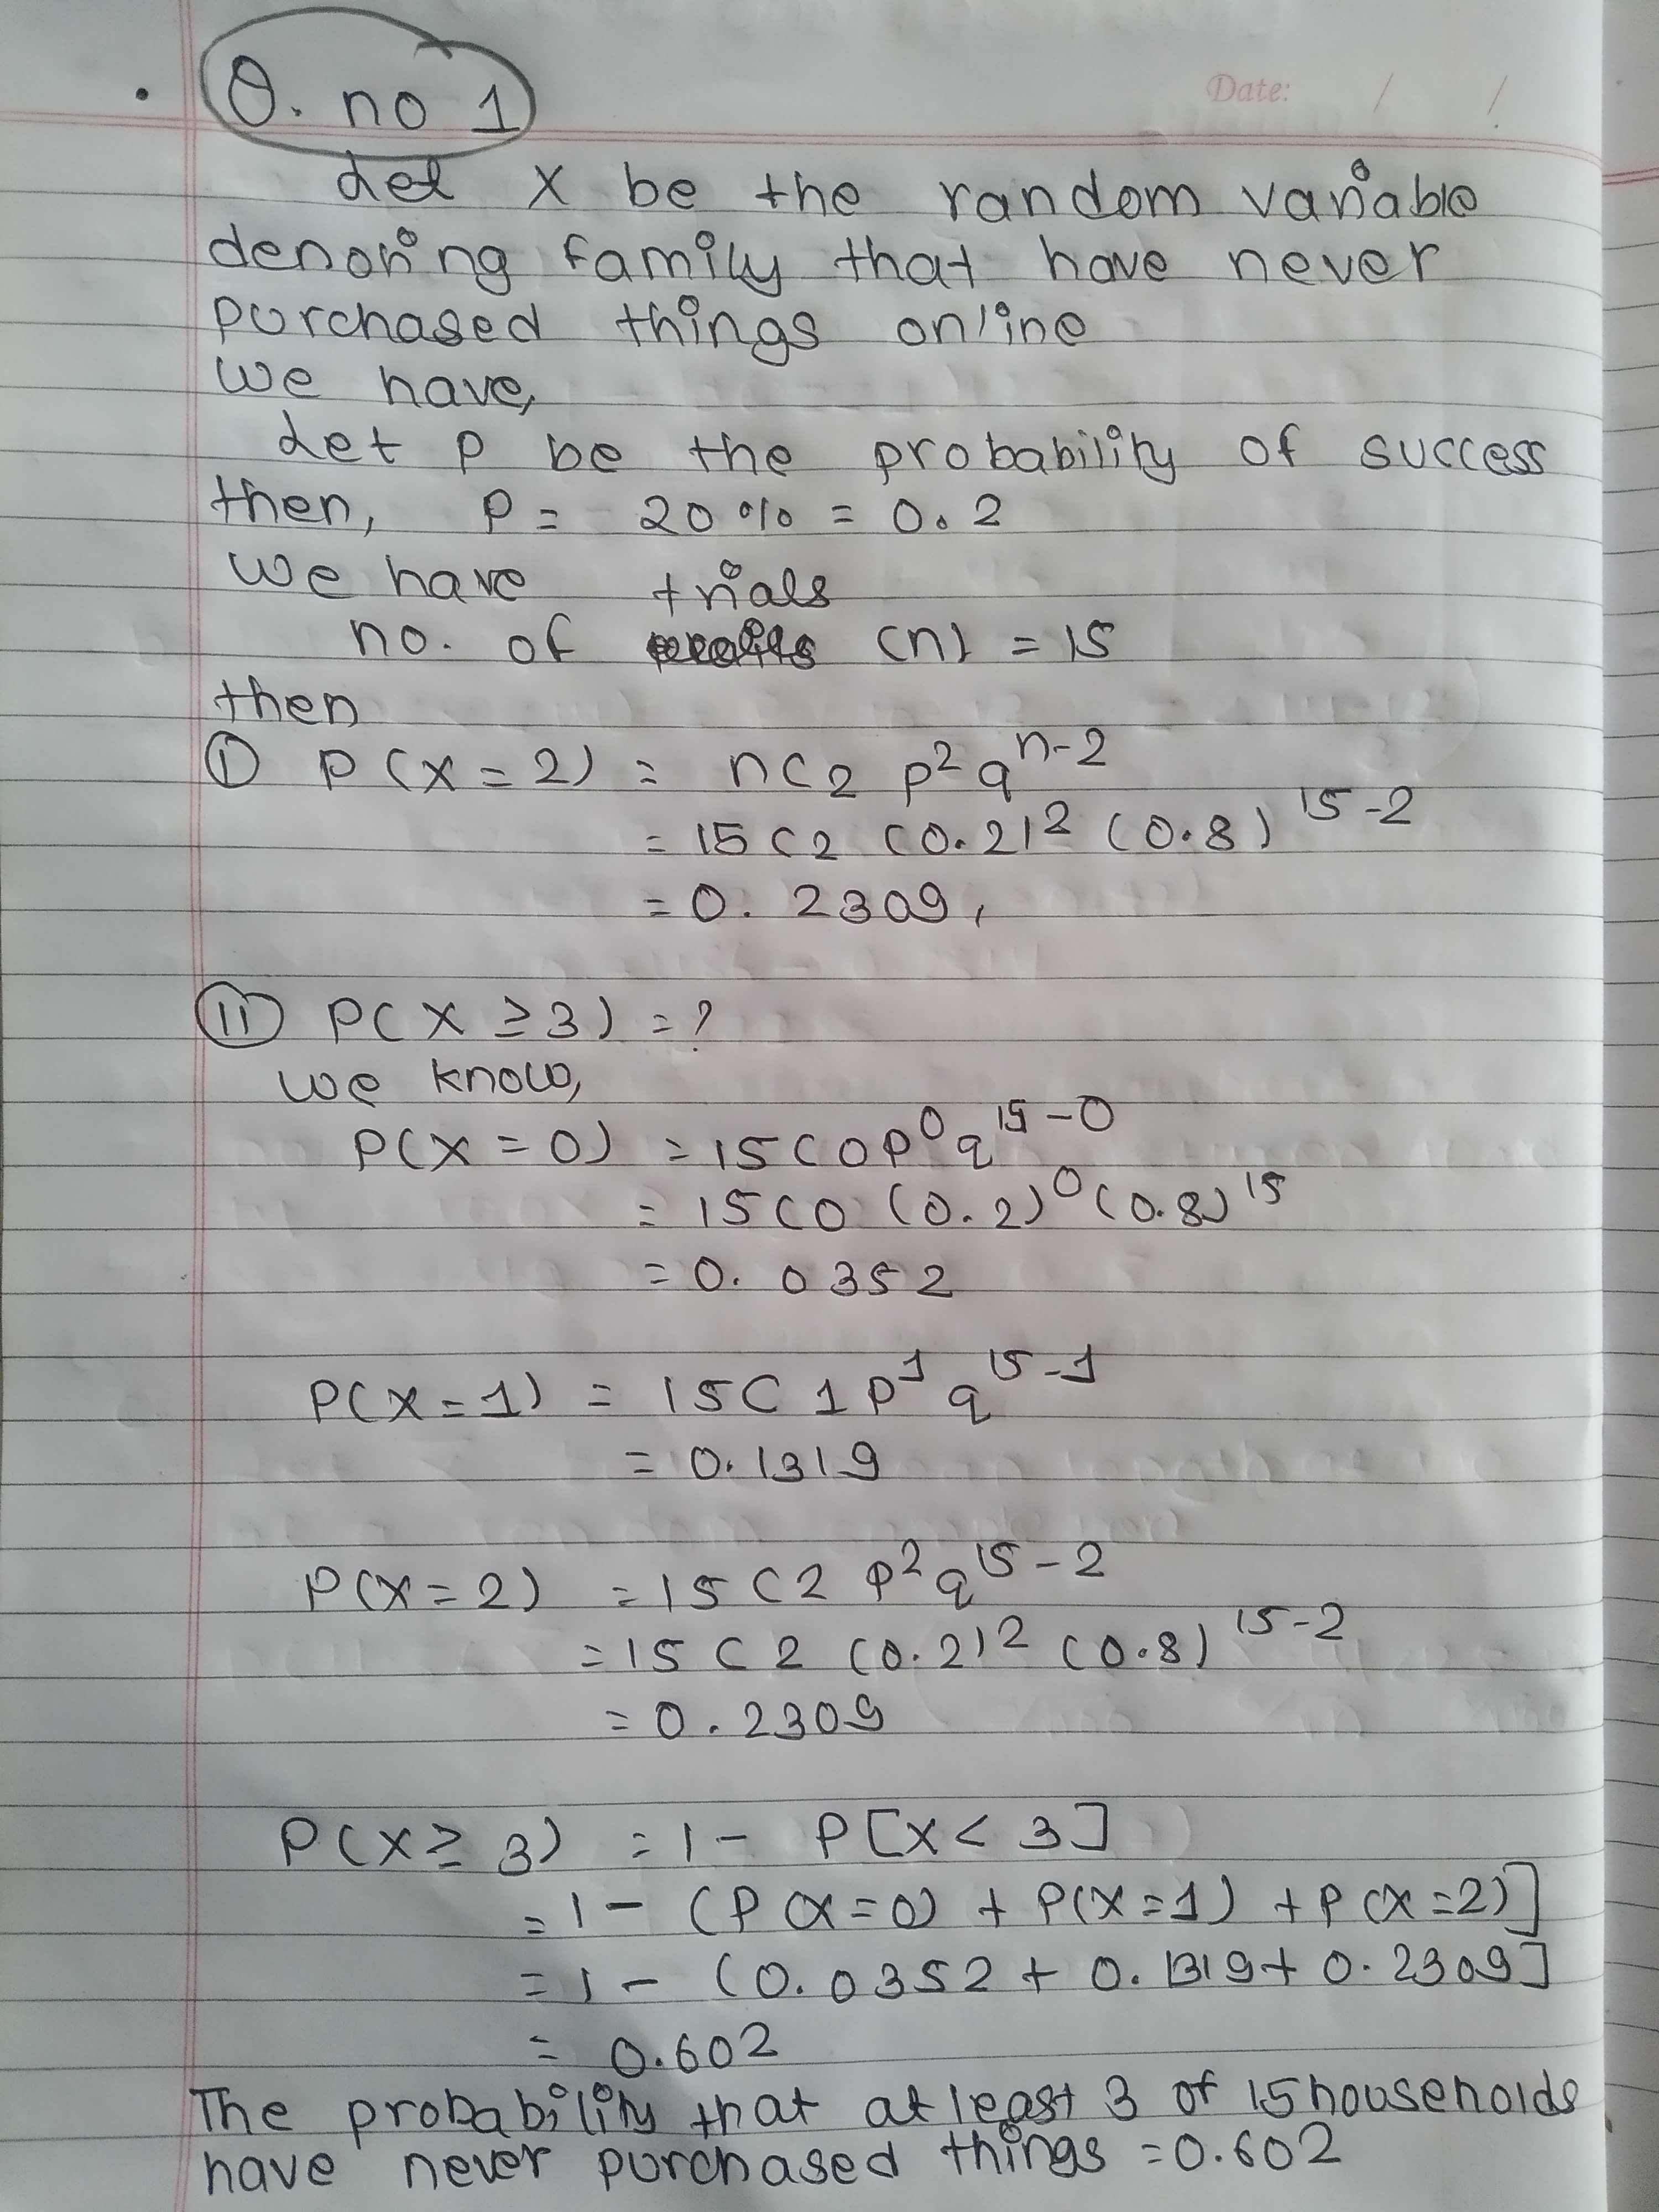 Q. no 1
Date: / /
Let X be the random variable
denoting family that have never
purchased things online
We have,
Let P be the probability of success
then, P = 20% = 0.2
We have trials
no. of (n) = 15
then
(i) P(X=2) = nC2 p²q^(n-2)
= 15C2 (0.2)² (0.8)^(15-2)
= 0.2309,
(ii) P(X ≥ 3) = ?
we know,
P(X=0) = 15C0 p⁰ q^(15-0)
= 15C0 (0.2)⁰ (0.8)^15
= 0.0352
P(X=1) = 15C1 p¹ q^(15-1)
= 0.1319
P(X=2) = 15C2 p² q^(15-2)
= 15C2 (0.2)² (0.8)^(15-2)
= 0.2309
P(X ≥ 3) = 1 - P[X < 3]
= 1 - (P(X=0) + P(X=1) + P(X=2)]
= 1 - (0.0352 + 0.1319 + 0.2309]
= 0.602
The probability that at least 3 of 15 households
have never purchased things = 0.602